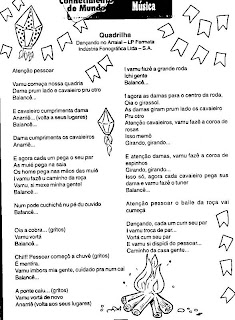 Conhecimento
do Mundo
Música
Quadrilha
Dançando no Arraial – LP Formata
Industria Fonográfica Ltda – S.A.
Atenção pessoar
Vamu começa nossa quadria
Dama prum lado e cavaleiro pru otro
Balancê...
E cavaleiro cumprimenta dama
Anarriê... (volta a seus lugares)
Balancê...
Dama cumprimenta os cavaleiros
Anarriê...
E agora cada um pega o seu par
As muié pega na saia
Os home pega nas mãos das muié
I vamu fazê u caminho da roça
Vamu, si mexa minha gente!
Balancê...
Num pode cuchichá nu pé du ouvido
Balancê...
Oia a cobra... (gritos)
Vamu vortá
Balancê...
Chiii! Pessoar começô a chuvê (gritos)
É mentira.
Vamu imbora mia gente, cuidado pra num cai
Balancê...
A ponte caiu... (gritos)
Vamu vortá de novo
Anarriê (volta aos seus lugares)
I vamu fazê a grande roda
Ichi gente
Balancê...
I agora as damas para o centro da roda,
Oia o girassol.
As damas giram prum lado os cavaleiro
Pru otro
Atenção cavaleiros, vamu fazê a coroa de
rosas
Isso memo
Girando, girando...
E atenção damas, vamu fazê a coroa de
espinhos
Girando, girando...
Isso só, agora cada cavaleiro pega sus
dama e vamu fazê o tuner
Balancê...
Atenção pessoar o baile da roça vai
começá
Dançando, cada um cum seu par
I vamu troca de par...
Vortá cum seu par
E vamu si dispidi do pessoar...
Caminho da casa gente...